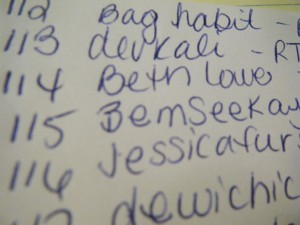 112 Bag habit -
113 devkali - RT
114 Beth Lowe
115 Bemseekay
116 Jessicafur
dewichic